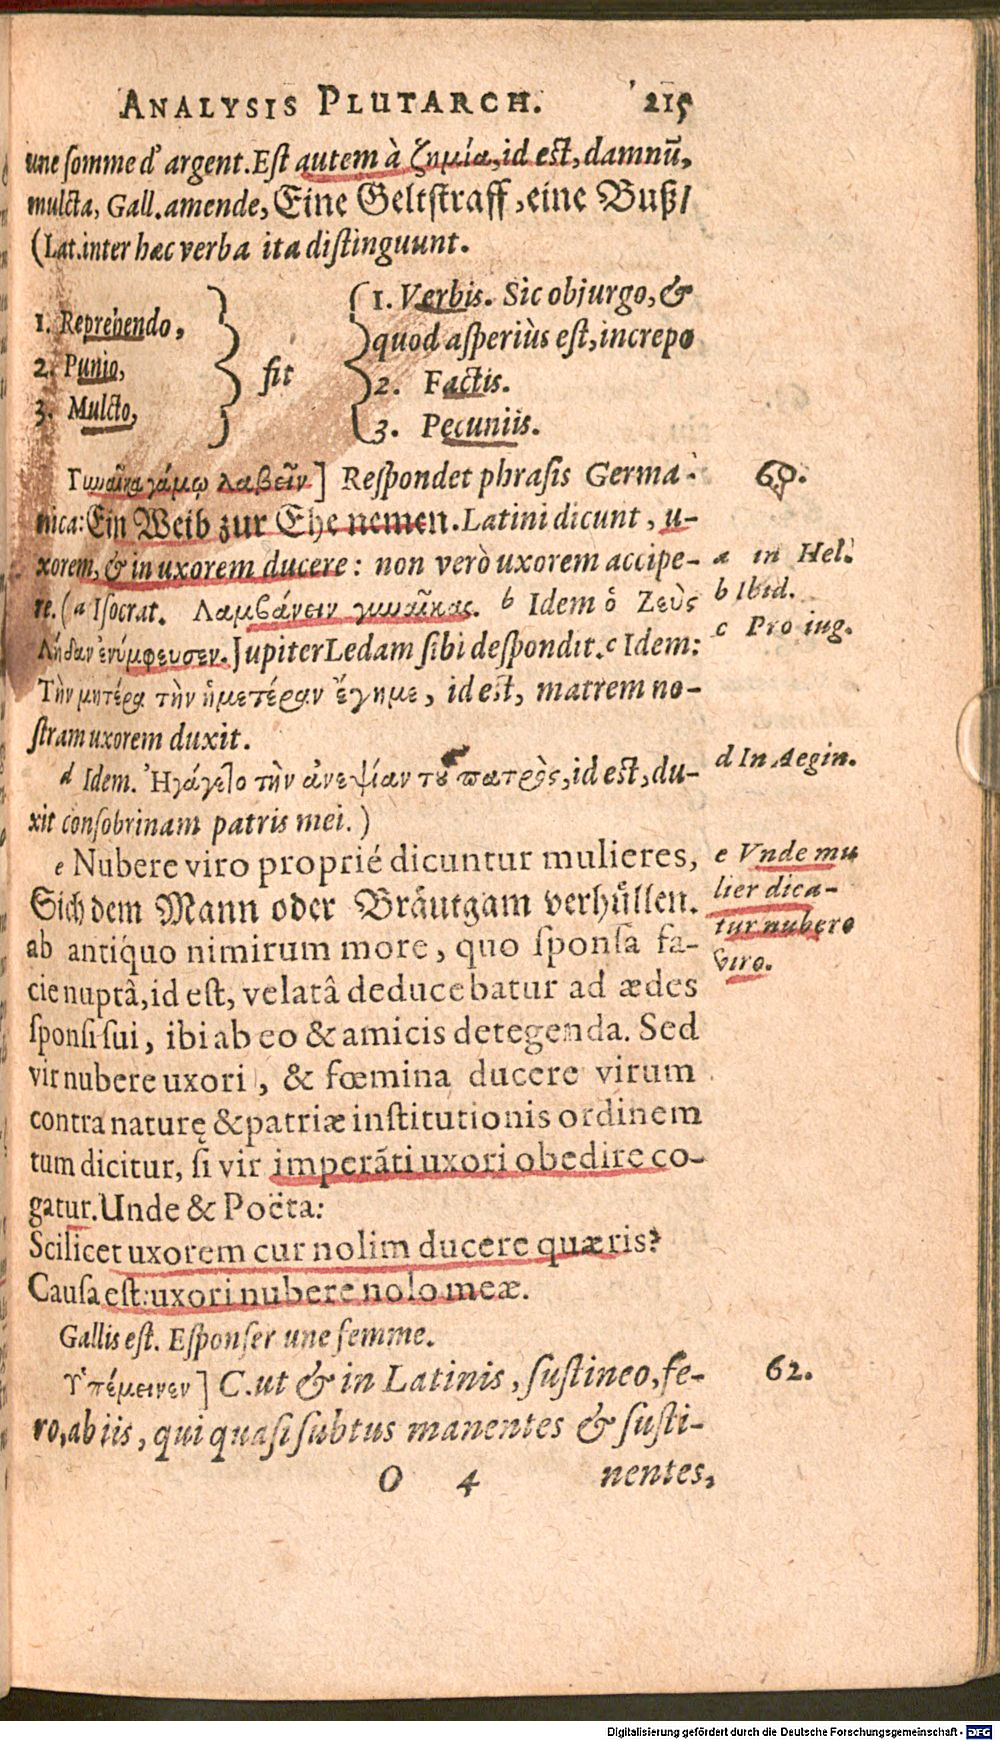 ANALYSIS PLUTARCH. 215
une somme d' argent. Est autem à ζημία, id est, damnũ,
mulcta, Gall. amende, Eine Geltstraff, eine Buß/
(Lat. inter hæc verba ita distinguunt.
1. Reprehendo,
2. Punio,
3. Mulcto,
fit
1. Verbis. Sic objurgo, &
quod asperiùs est, increpo
2. Factis.
3. Pecuniis.
Γυναῖκα γάμῳ λαβεῖν] Respondet phrasis Germa-
nica: Ein Weib zur Ehe nemen. Latini dicunt, u-
xorem, & in uxorem ducere: non verò uxorem accipe-
re. (a Isocrat. Λαμβάνειν γυναῖκας. b Idem ὁ Ζεὺς
Λήδαν ἐνύμφευσεν. Jupiter Ledam sibi despondit. c Idem:
Τὴν μητέρα τὴν ἡμετέραν ἔγημε, id est, matrem no-
stram uxorem duxit.
d Idem. Ἠγάγετο τὴν ἀνεψίαν τοῦ πατρὸς, id est, du-
xit consobrinam patris mei.)
e Nubere viro proprié dicuntur mulieres,
Sich dem Mann oder Bräutgam verhüllen.
ab antiquo nimirum more, quo sponsa fa-
cie nuptâ, id est, velatâ deducebatur ad ædes
sponsi sui, ibi ab eo & amicis detegenda. Sed
vir nubere uxori, & fœmina ducere virum
contra naturę & patriæ institutionis ordinem
tum dicitur, si vir imperãti uxori obedire co-
gatur. Unde & Poëta:
Scilicet uxorem cur nolim ducere quæris?
Causa est: uxori nubere nolo meæ.
Gallis est. Esponser une femme.
Ὑπέμεινεν] C. ut & in Latinis, sustineo, fe-
ro, ab iis, qui quasi subtus manentes & susti-
O 4 nentes,
a in Hel.
b Ibid.
c Pro iug.
d In Aegin.
e Vnde mu
lier dica-
tur nubere
viro.
62.